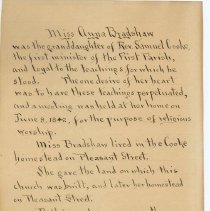 Miss Anna Bradshaw
was the granddaughter of Rev. Samuel Cooke,
the first minister of the First Parish,
and loyal to the teachings for which he
stood. The one desire of her heart
was to have these teachings perpetuated,
and a meeting was held at her home on
June 8, 1842, for the purpose of religious
worship.
Miss Bradshaw lived in the Cooke
homestead on Pleasant Street.
She gave the land on which this
church was built, and later her homestead
on Pleasant Street.